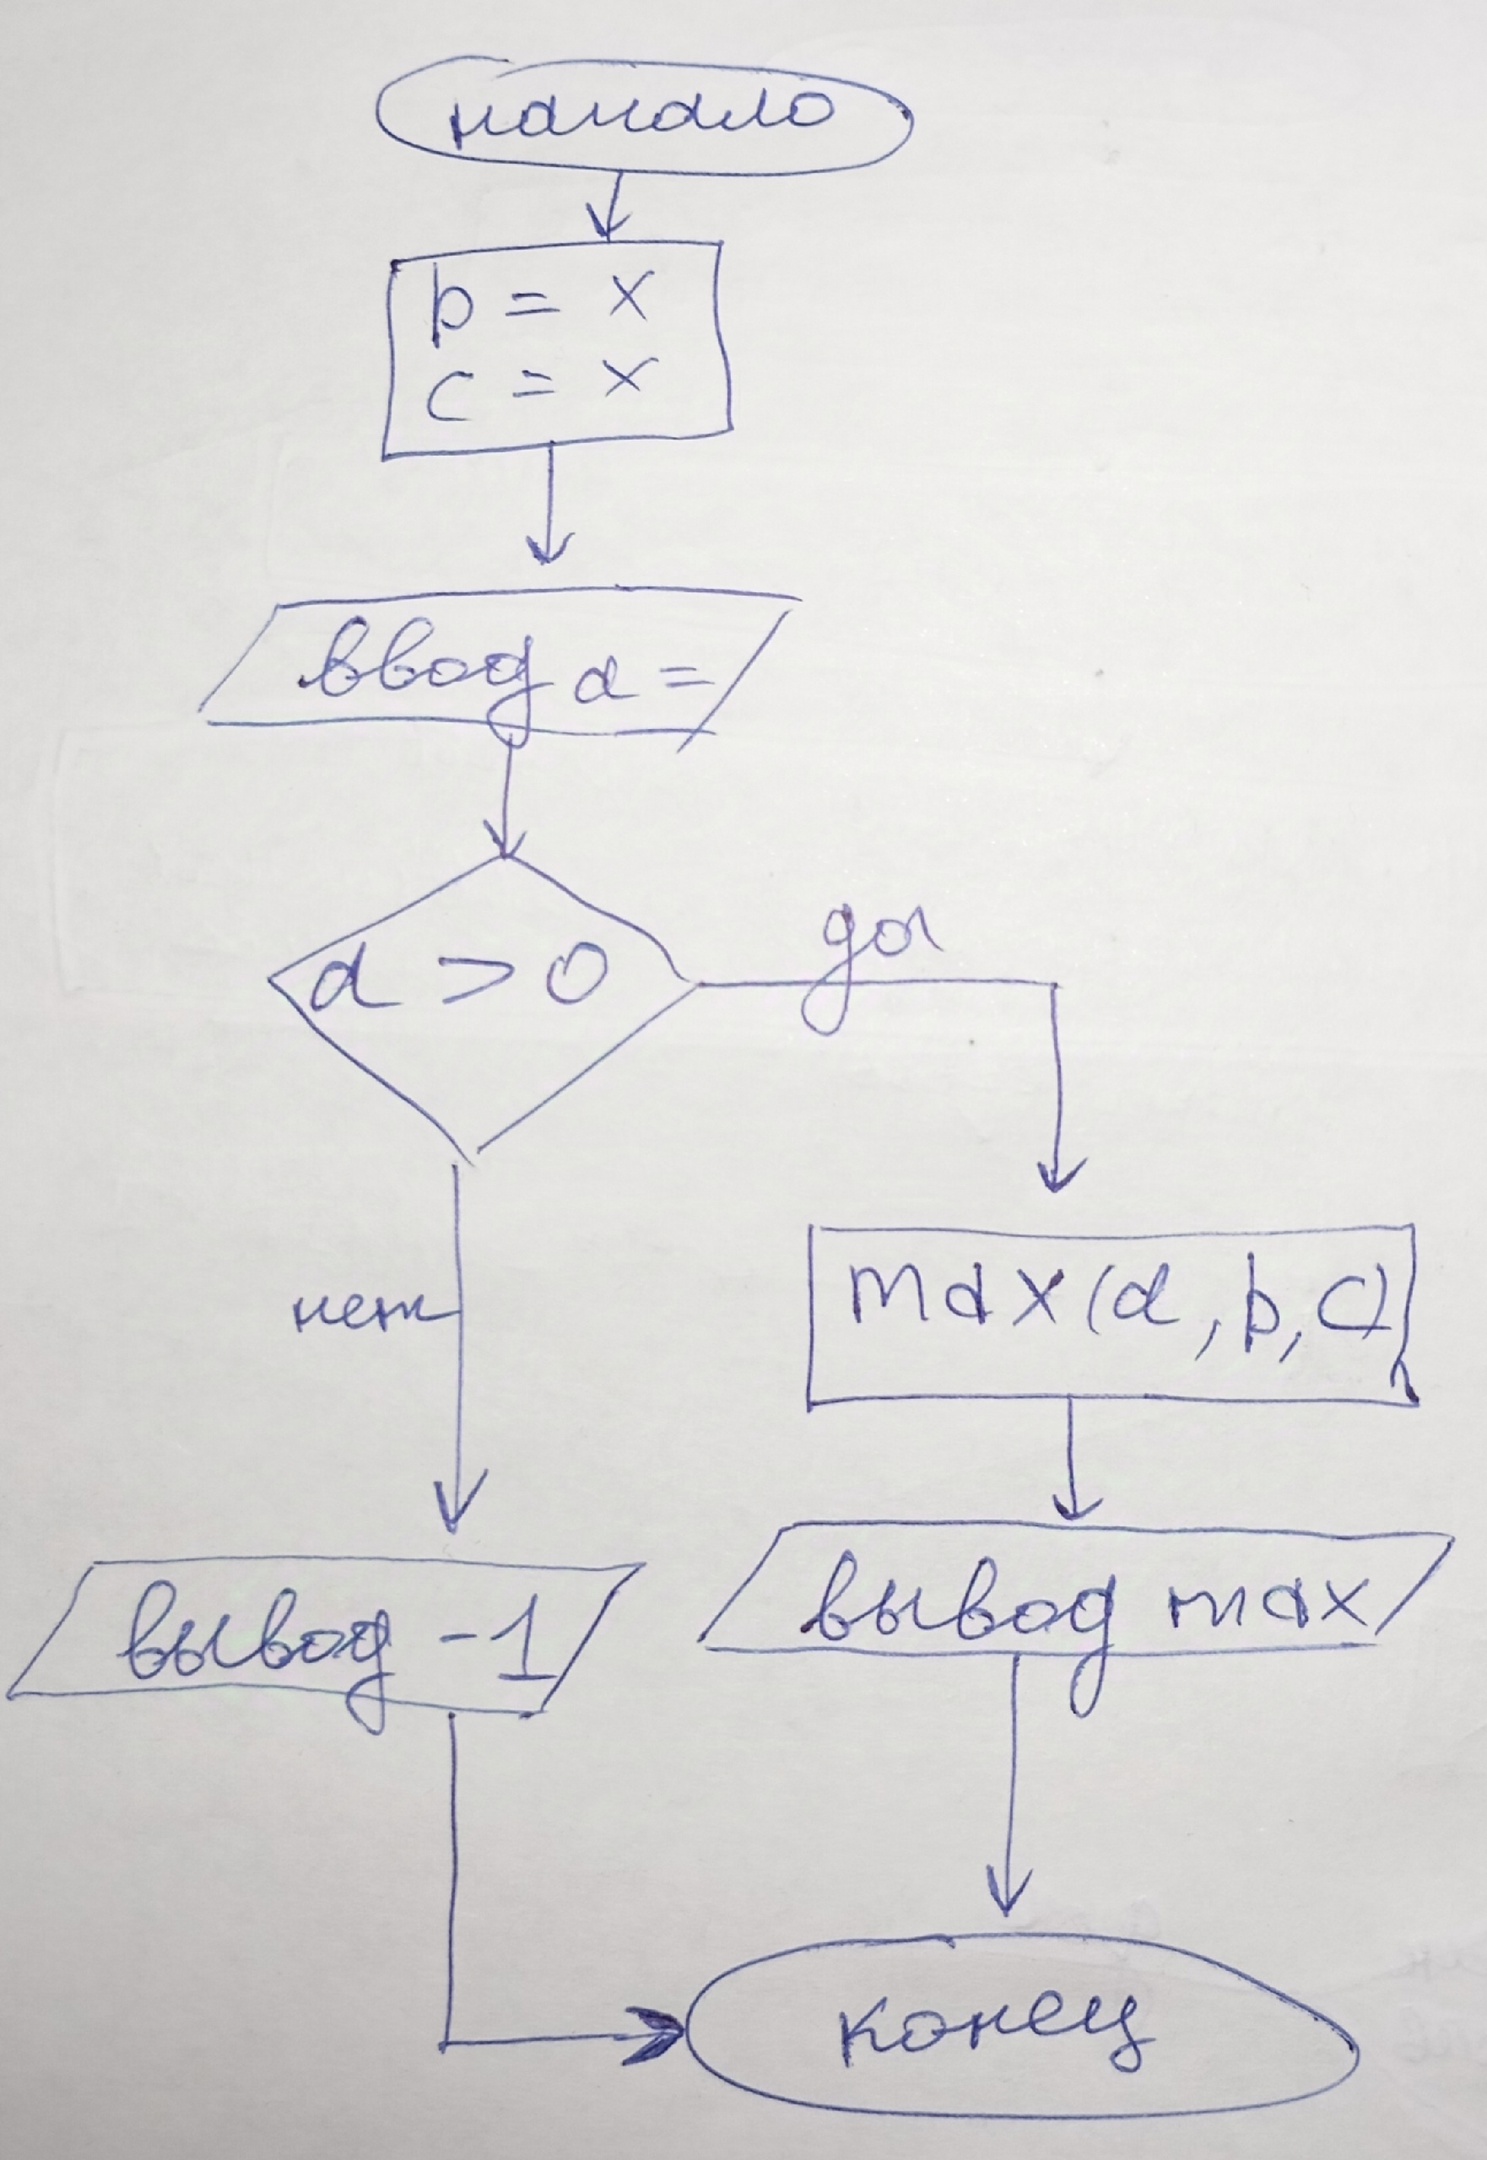 начало
b = x
c = x
ввод a =
a > 0
да
нет
max(a, b, c)
вывод -1
вывод max
конец